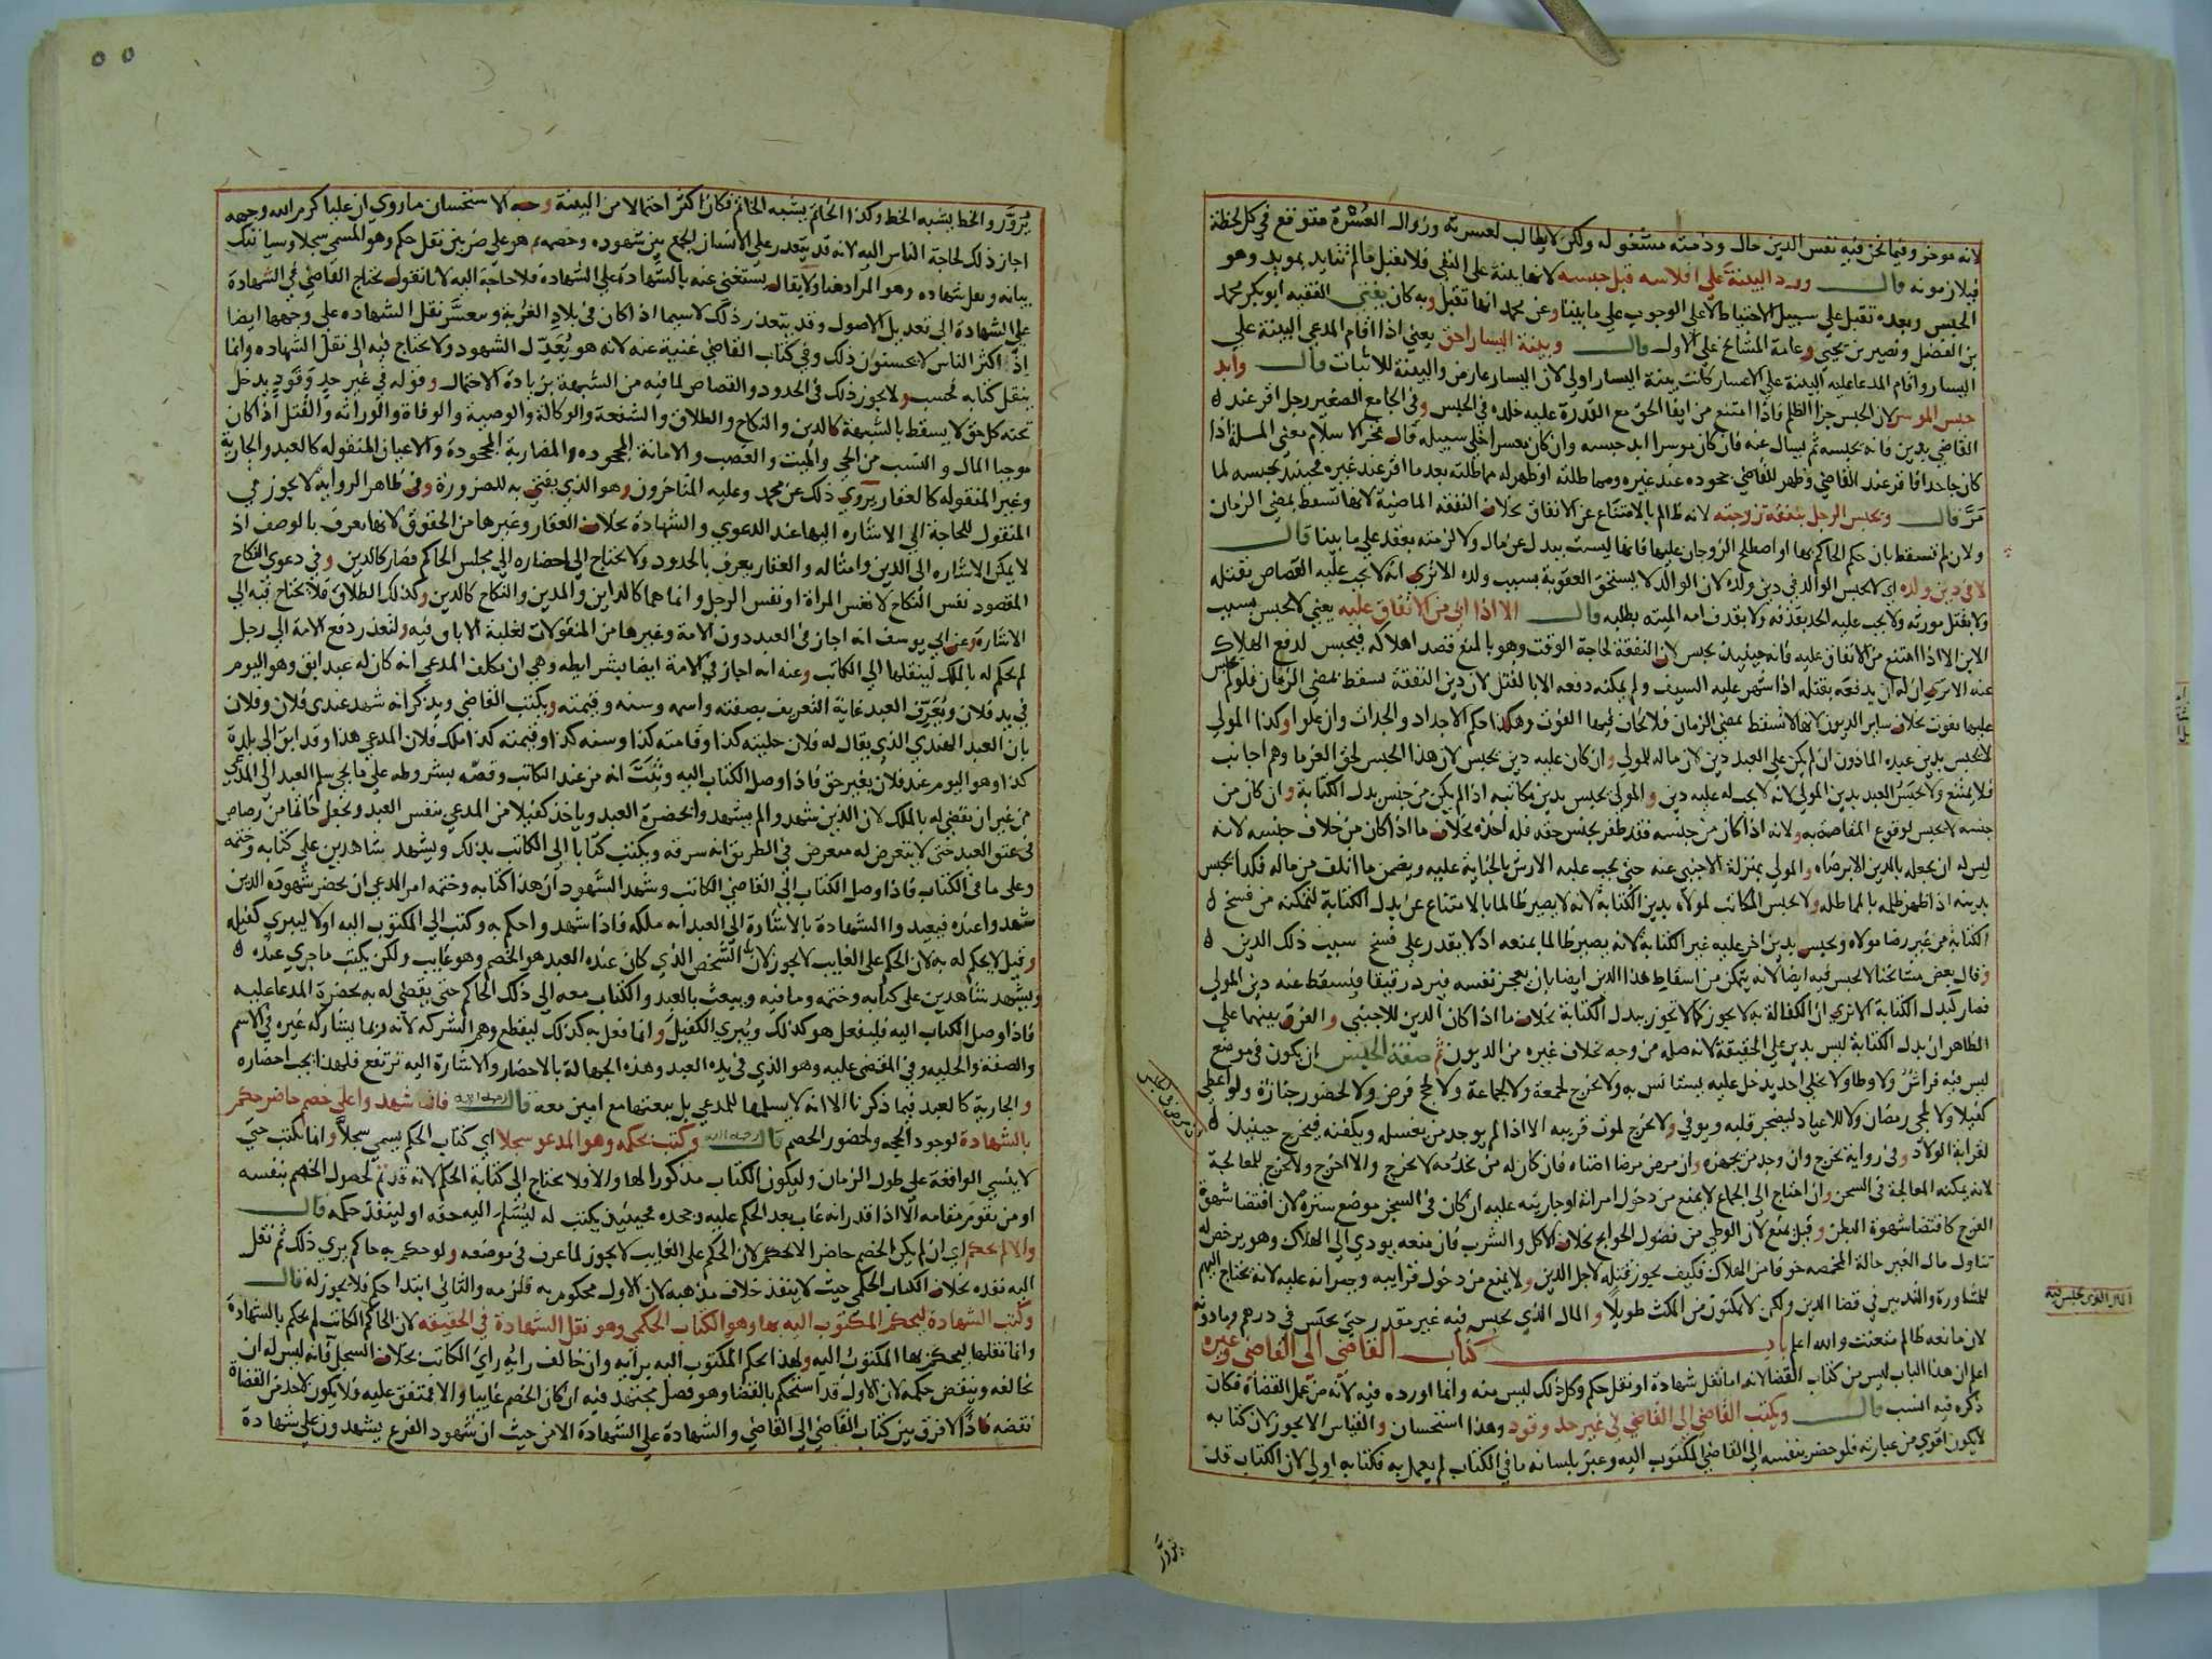 لانه موخر وفيما نحن فيه نفس الدين حال وذمته مشغوله ولكن لا يطالب لعسرته وزوال العسرة متوقع في كل لحظة
فيلازمونه قال ورد البينة على افلاسه قبل حبسه لانها بينة على النفي فلا تقبل مالم تتايد بمويد وهو
الحبس وبعده تقبل على سبيل الاحتياط لا على الوجوب على ما بينا وعن محمد انها تقبل وبه كان يفتي الفقيه ابو بكر محمد
بن الفضل ونصير بن يحيى وعامة المشائخ على الاول قال وبينة اليسار احق يعني اذا اقام المدعي البينة على
اليسار واقام المدعا عليه البينة على الاعسار كانت بينة اليسار اولى لان اليسار عارض والبينة للاثبات قال وابد
حبس الموسر لان الحبس جزا الظلم فاذا امتنع من ايفا الحق مع القدرة عليه خلده في الحبس وفي الجامع الصغير رجل اقر عند
القاضي بدين فانه يحبسه ثم يسال عنه فان كان موسرا ابد حبسه وان كان معسرا خلى سبيله قال فخر الاسلام معنى المسلة اذا
كان جاحدا فاقر عند القاضي وظهر للقاضي جحوده عند غيره ومماطلته او ظهر له مماطلته بعد ما اقر عند غيره فحينئذ يحبسه لما
مر قال ويحبس الرجل بنفقة زوجته لانه ظالم بالامتناع عن الانفاق بخلاف النفقه الماضية لانها تسقط بمضي الزمان
ولان لم تسقط بان حكم الحاكم بها او اصطلح الزوجان عليها فانها ليست ببدل عن مال ولا لزمته بعقد على ما بينا قال
لا في دين ولده اي لا يحبس الوالد في دين ولده لان الوالد لا يستحق العقوبة بسبب ولده الا ترى انه لا يجب عليه القصاص بقتله
ولا بقتل مورثه ولا يجب عليه الحد بقذفه ولا بقذف امه الميته بطلبه قال الا اذا ابى من الانفاق عليه يعني لا يحبس بسبب
الابن الا اذا امتنع من الانفاق عليه فانه حينيذ يحبس لان النفقة لحاجة الوقت وهو بالمنع قصد اهلاكه فيحبس لدفع الهلاك
عنه الا ترى ان له ان يدفعه بقتله اذا شهر عليه السيف ولم يمكنه دفعه الا بالقتل لان دين النفقة تسقط بمضي الزمان فلو لم يحبس
عليها تفوت بخلاف ساير الديون لانها لا تسقط بمضي الزمان فلا يخاف فيها الفوت وهكذا حكم الاجداد والجدات وان علوا وكذا المولى
لا يحبس بدين عبده الماذون ان لم يكن على العبد دين لان ماله للمولى وان كان عليه دين يحبس لان هذا الحبس لحق الغرما وهم اجانب
فلا يمتنع ولا يحبس العبد بدين المولى لانه لا يجب له عليه دين والمولى يحبس بدين مكاتبه اذا لم يكن من جنس بدل الكتابة وان كان من
جنسه لا يحبس لوقوع المقاصة به ولانه اذا كان من جنسه فقد ظفر بجنس حقه فله اخذه بخلاف ما اذا كان من خلاف جنسه لانه
ليس له ان يجعله بالدين الا برضاه والمولى بمنزلة الاجنبي عنه حتى يجب عليه الارش بالجناية عليه ويضمن ما اتلف من ماله فكذا يحبس
بدينه اذا ظهر ظلمه بالمماطله ولا يحبس المكاتب لمولاه بدين الكتابة لانه لا يصير ظالما بالامتناع عن بدل الكتابة لتمكنه من فسخ
الكتابة من غير رضا مولاه ويحبس بدين اخر عليه غير الكتابة لانه يصير ظالما بمنعه اذ لا يقدر على فسخ سبب ذلك الدين
وقال بعض مشايخنا لا يحبس فيه ايضا لانه يتمكن من اسقاط هذا الدين ايضا بان يعجز نفسه فيرد رقيقا فيسقط عنه دين المولى
فصار كبدل الكتابة الا ترى ان الكفالة به لا يجوز كما لا تجوز ببدل الكتابة بخلاف ما اذا كان الدين للاجنبي والفرق بينهما على
الظاهر ان بدل الكتابة ليس بدين على الحقيقة لانه صله من وجه بخلاف غيره من الديون ثم صفة الحبس ان يكون في موضع
ليس فيه فراش ولا وطا ولا يخلى احد يدخل عليه ليستانس به ولا يخرج لجمعة ولا لجماعة ولا لحج فرض ولا لحضور جنازة ولو اعطى
كفيلا ولا لمجي رمضان ولا للاعياد ليضجر قلبه ويوفي ولا يخرج لموت قريبه الا اذا لم يوجد من يغسله ويكفنه فيخرج حينيذ
لقرابة الولاد وفي رواية يخرج وان وجد من يجهزه وان مرض مرضا اضناه فان كان له من يخدمه لا يخرج والا اخرج ولا يخرج للمعالجة
لانه يمكنه المعالجة في السجن وان احتاج الى الجماع لا يمنع من دخول امراته او جاريته عليه ان كان في السجن موضع سترة لان اقتضا شهوة
الفرج كاقتضا شهوة البطن وقيل يمنع لان الوطي من فضول الحوايج بخلاف الاكل والشرب فان منعه يودي الى الهلاك وهو يرخص له
تناول مال الغير حالة المخمصه خوفا من الهلاك فكيف يجوز قتله لاجل الدين ولا يمنع من دخول قرايبه وجيرانه عليه لانه يحتاج اليهم
للمشاورة والتدبير في قضا الدين ولكن لا يمكنون من المكث طويلا والمال الذي يحبس فيه غير مقدر حتى يحبس في درهم وما دونه
لان مانعه ظالم متعنت والله اعلم باب كتاب القاضي الى القاضي وغيره
اعلم ان هذا الباب ليس من كتاب القضا لانه اما نقل شهادة او نقل حكم وكل ذلك ليس منه وانما اورده فيه لانه من عمل القضاة فكان
ذكره فيه انسب قال ويكتب القاضي الى القاضي في غير حد وقود وهذا استحسان والقياس الا يجوز لان كتابه
لا يكون اقوى من عبارته فلو حضر بنفسه الى القاضي المكتوب اليه وعبر بلسانه ما في الكتاب لم يعمل به فكتابه اولى لان الكتاب قد
يزور
يزور والخط يشبه الخط وكذا الخاتم يشبه الخاتم فكان اكثر احتمالا من البينة وجه الاستحسان ما روي ان عليا كرم الله وجهه
اجاز ذلك لحاجة الناس اليه لانه قد يتعذر على الانسان الجمع بين شهوده وخصمه ثم هو على ضربين نقل حكم وهو المسمى سجلا وسياتيك
بيانه ونقل شهاده وهو المراد هنا ولا يقال يستغنى عنه بالشهادة على الشهادة فلا حاجة اليه لانا نقول يحتاج القاضي في الشهادة
على الشهادة الى تعديل الاصول وقد يتعذر ذلك لا سيما اذا كان في بلاد الغربة ومعسر نقل الشهاده على وجهها ايضا
اذ اكثر الناس لا يحسنون ذلك وفي كتاب القاضي غنية عنه لانه هو يعدل الشهود ولا يحتاج فيه الى نقل الشهاده وانما
ينقل كتابه فحسب ولا يجوز ذلك في الحدود والقصاص لما فيه من الشبهة بزيادة الاحتمال وقوله في غير حد وقود يدخل
تحته كل حق لا يسقط بالشبهة كالدين والنكاح والطلاق والشفعة والوكالة والوصية والوفاة والوراثه والقتل اذا كان
موجبا المال والنسب من الحي والميت والغصب والامانة المجحوده والمضاربة المجحودة والاعيان المنقوله كالعبد والجارية
وغير المنقوله كالعقار يروي ذلك عن محمد وعليه المتاخرون وهو الذي يفتى به للضرورة وفي ظاهر الرواية لا يجوز في
المنقول للحاجة الى الاشاره اليها عند الدعوى والشهادة بخلاف العقار وغيرها من الحقوق لانها يعرف بالوصف اذ
لا يمكن الاشاره الى الدين وامثاله والعقار يعرف بالحدود ولا يحتاج الى احضاره الى مجلس الحاكم فصار كالدين وفي دعوى النكاح
المقصود نفس النكاح لا نفس المراة او نفس الرجل وانما هما كالداين والمدين والنكاح كالدين وكذلك الطلاق فلا يحتاج فيه الى
الاشارة وعن ابي يوسف انه اجاز في العبد دون الامة وغيرها من المنقولات لغلبة الاباق فيه ولتعذر دفع الامة الى رجل
لم يحكم له بالملك لينقلها الى الكاتب وعنه انه اجاز في الامة ايضا بشرايطه وهي ان يكلف المدعي انه كان له عبد ابق وهو اليوم
في يد فلان ويعرف العبد غاية التعريف بصفته واسمه وسنه وقيمته ويكتب القاضي ويذكر انه شهد عندي فلان وفلان
بان العبد الهندي الذي يقال له فلان حليته كذا وقامته كذا وسنه كذا وقيمته كذا ملك فلان المدعي هذا وقد ابق الى بلدة
كذا وهو اليوم عند فلان بغير حق فاذا وصل الكتاب اليه وثبت انه من عند الكاتب وفضه بشروطه على ما يجي سلم العبد الى المدعي
من غير ان يقضي له بالملك لان الذين شهدوا لم يشهدوا بحضرة العبد وياخذ كفيلا من المدعي بنفس العبد ويجعل خاتما من رصاص
في عنق العبد حتى لا يتعرض له متعرض في الطريق انه سرقه ويكتب كتابا الى الكاتب بذلك ويشهد شاهدين على كتابه وختمه
وعلى ما في الكتاب فاذا وصل الكتاب الى القاضي الكاتب وشهد الشهود ان هذا كتابه وختمه امر المدعي ان يحضر شهوده الذين
شهدوا عنده فيعيدوا الشهادة بالاشارة الى العبد انه ملكه فاذا شهدوا حكم به وكتب الى المكتوب اليه اولا ليبري كفيله
وقيل لا يحكم له به لان الحكم على الغايب لا يجوز لان الشخص الذي كان عنده العبد هو الخصم وهو غايب ولكن يكتب ما جرى عنده
ويشهد شاهدين على كتابه وختمه وما فيه ويبعث بالعبد والكتاب معه الى ذلك الحاكم حتى يقضي له به بحضرة المدعا عليه
فاذا وصل الكتاب اليه فليفعل هو كذلك ويبري الكفيل وانما فعل به كذلك ليقطع وهم الشركه لانه ربما يشاركه غيره في الاسم
والصفة والحليه وفي المقضي عليه وهو الذي في يده العبد وهذه الجهالة بالاحضار والاشارة اليه ترتفع فلهذا يجب احضاره
والجارية كالعبد فيما ذكرنا الا انه لا يسلمها للمدعي بل يبعثها مع امين معه قال رحمه الله فان شهدوا على خصم حاضر حكم
بالشهادة لوجود الحجه ولحضور الخصم قال رحمه الله وكتب بحكمه وهو المدعو سجلا اي كتاب الحكم يسمى سجلا وانما يكتب حتى
لا ينسى الواقعة على طول الزمان وليكون الكتاب مذكورا لها والا فلا يحتاج الى كتابة الحكم لانه قد تم لحصول الخصم بنفسه
او من يقوم مقامه الا اذا قدر انه غاب بعد الحكم عليه وجحده فحينيذ يكتب له ليسلم اليه حقه او لينفذ حكمه قال
والا لم يحكم اي ان لم يكن الخصم حاضرا لا يحكم لان الحكم على الغايب لا يجوز لما عرف في موضعه ولو حكم به حاكم يرى ذلك ثم نقل
اليه نفذه بخلاف الكتاب الحكمي حيث لا ينفذ خلاف مذهبه لان الاول محكوم به فلزمه والثاني ابتدا حكم فلا يجوز له قال
وكتب الشهادة ليحكم المكتوب اليه بها وهو الكتاب الحكمي وهو نقل الشهادة في الحقيقه لان الحاكم الكاتب لم يحكم بالشهادة
وانما نقلها ليحكم بها المكتوب اليه ولهذا يحكم المكتوب اليه برايه وان خالف رايه راي الكاتب بخلاف السجل فانه ليس له ان
يخالفه وينقض حكمه لان الاول قد استحكم بالقضا وهو فصل مجتهد فيه ان كان الخصم غايبا والا فمتفق عليه فلا يكون لاحد من القضاة
نقضه فاذا لا فرق بين كتاب القاضي الى القاضي والشهادة على الشهادة الا من حيث ان شهود الفرع يشهدون على شهادة